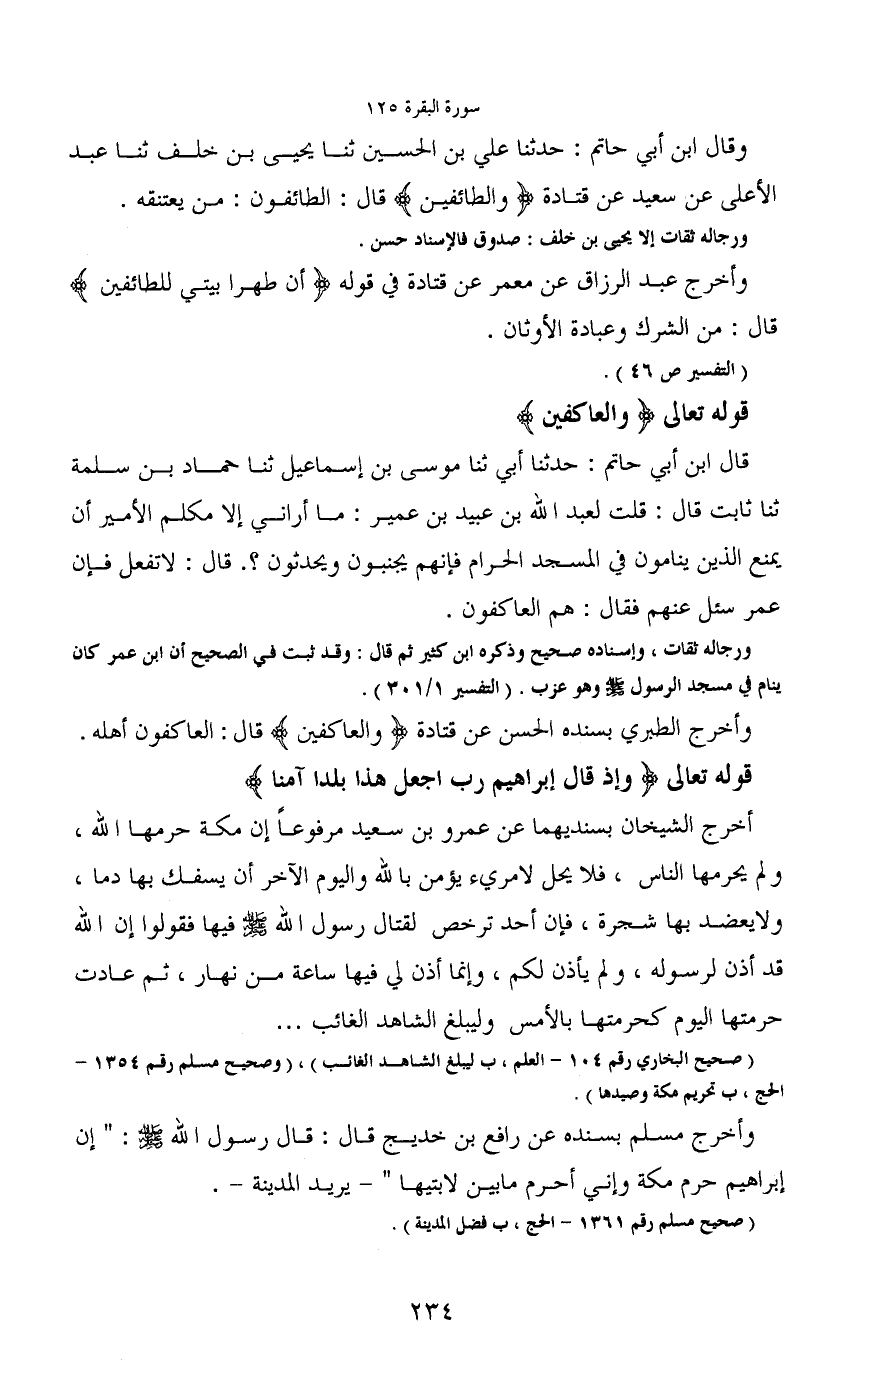 سورة البقرة ١٢٥
وقال ابن أبي حاتم : حدثنا علي بن الحسين ثنا يحيى بن خلف ثنا عبد
الأعلى عن سعيد عن قتادة ﴿ والطائفين ﴾ قال : الطائفون : من يعتنقه .
ورجاله ثقات إلا يحيى بن خلف : صدوق فالإسناد حسن .
وأخرج عبد الرزاق عن معمر عن قتادة في قوله ﴿ أن طهرا بيتي للطائفين ﴾
قال : من الشرك وعبادة الأوثان .
( التفسير ص ٤٦ ) .
قوله تعالى ﴿ والعاكفين ﴾
قال ابن أبي حاتم : حدثنا أبي ثنا موسى بن إسماعيل ثنا حماد بن سلمة
ثنا ثابت قال : قلت لعبد الله بن عبيد بن عمير : ما أراني إلا مكلم الأمير أن
يمنع الذين ينامون في المسجد الحرام فإنهم يجنبون ويحدثون ؟. قال : لاتفعل فإن
عمر سئل عنهم فقال : هم العاكفون .
ورجاله ثقات ، وإسناده صحيح وذكره ابن كثير ثم قال : وقد ثبت في الصحيح أن ابن عمر كان
ينام في مسجد الرسول ﷺ وهو عزب . ( التفسير ٣٠١/١ ) .
وأخرج الطبري بسنده الحسن عن قتادة ﴿ والعاكفين ﴾ قال : العاكفون أهله .
قوله تعالى ﴿ وإذ قال إبراهيم رب اجعل هذا بلدا آمنا ﴾
أخرج الشيخان بسنديهما عن عمرو بن سعيد مرفوعاً إن مكة حرمها الله ،
ولم يحرمها الناس ، فلا يحل لامريء يؤمن بالله واليوم الآخر أن يسفك بها دما ،
ولايعضد بها شجرة ، فإن أحد ترخص لقتال رسول الله ﷺ فيها فقولوا إن الله
قد أذن لرسوله ، ولم يأذن لكم ، وإنما أذن لي فيها ساعة من نهار ، ثم عادت
حرمتها اليوم كحرمتها بالأمس وليبلغ الشاهد الغائب ...
( صحيح البخاري رقم ١٠٤ - العلم ، ب ليبلغ الشاهد الغائب ) ، ( وصحيح مسلم رقم ١٣٥٤ -
الحج ، ب تحريم مكة وصيدها ) .
وأخرج مسلم بسنده عن رافع بن خديج قال : قال رسول الله ﷺ : " إن
إبراهيم حرم مكة وإني أحرم مابين لابتيها " - يريد المدينة - .
( صحيح مسلم رقم ١٣٦١ - الحج ، ب فضل المدينة ) .
٢٣٤